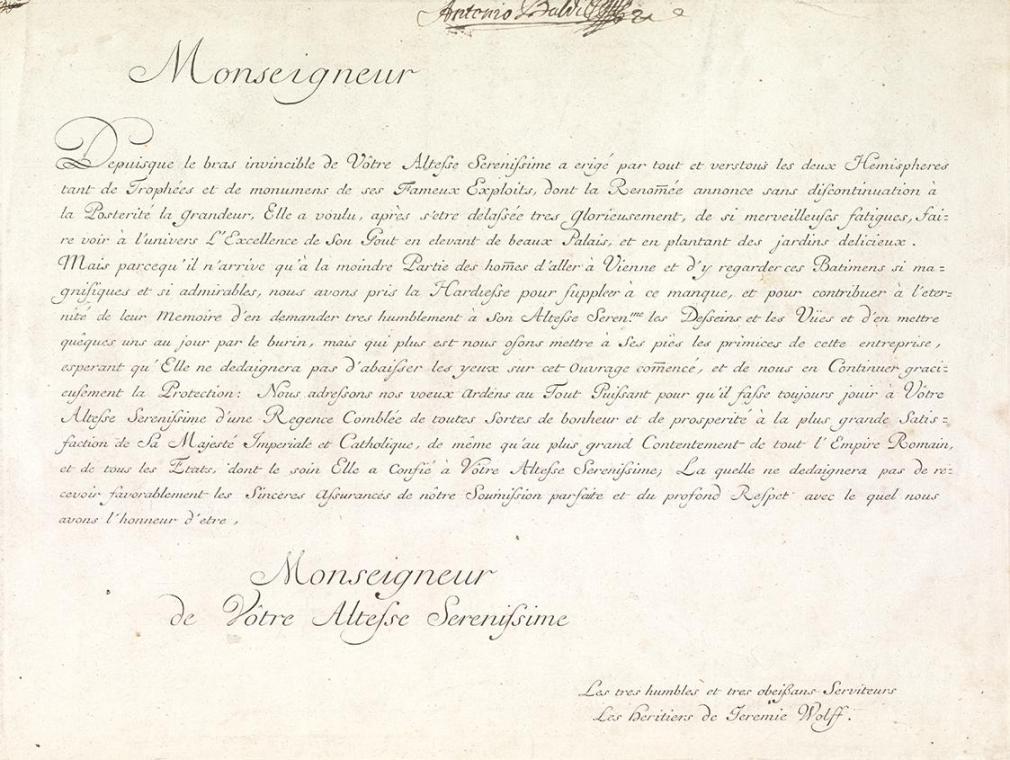 Antonio
Monseigneur
Depuisque le bras invincible de Vôtre Altesse Serenissime a erigé par tout et verstous les deux Hémispheres
tant de Trophées et de monumens de ses Fameux Exploits, dont la Renom̃ée annonce sans discontinuation à
la Posterité la grandeur, Elle a voulu, après s'etre delassée tres glorieusement, de si merveilleuses fatigues, fai=
re voir à l'univers L'Excellence de Son Gout en elevant de beaux Palais, et en plantant des jardins delicieux.
Mais parcequ'il n'arrive qu'à la moindre Partie des hom̃es d'aller à Vienne et d'y regarder ces Batimens si ma=
gnifiques et si admirables, nous avons pris la Hardiesse pour suppleer à ce manque, et pour contribuer à l'eter=
nité de leur Memoire d'en demander tres humblement à Son Altesse Seren.me les Desseins et les Vües et d'en mettre
quêques uns au jour par le burin, mais qui plus est nous osons mettre à Ses piës les primices de cette entreprise,
esperant qu'Elle ne dedaignera pas d'abaisser les yeux sur cet Ouvrage com̃encé, et de nous en Continuer graci=
eusement la Protection: Nous adressons nos voeux Ardens au Tout Puissant pour qu'il fasse toujours jouir à Vôtre
Altesse Serenissime d'une Regence Comblée de toutes Sortes de bonheur et de prosperité à la plus grande Satis=
faction de Sa Majesté Imperiale et Catholique, de même qu'au plus grand Contentement de tout l'Empire Romain,
et de tous les Etats, dont le soin Elle a Confié à Vôtre Altesse Serenissime; La quelle ne dedaignera pas de re=
cevoir favorablement les Sinceres Assurances de nôtre Soumission parfaite et du profond Respet avec le quel nous
avons l'honneur d'etre,
Monseigneur
de Vôtre Altesse Serenissime
Les tres humbles et tres obeißans Serviteurs
Les heritiers de Jeremie Wolff.